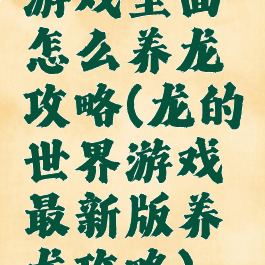 游戏里面
怎么养龙
攻略(龙的
世界游戏
最新版养
龙攻略)